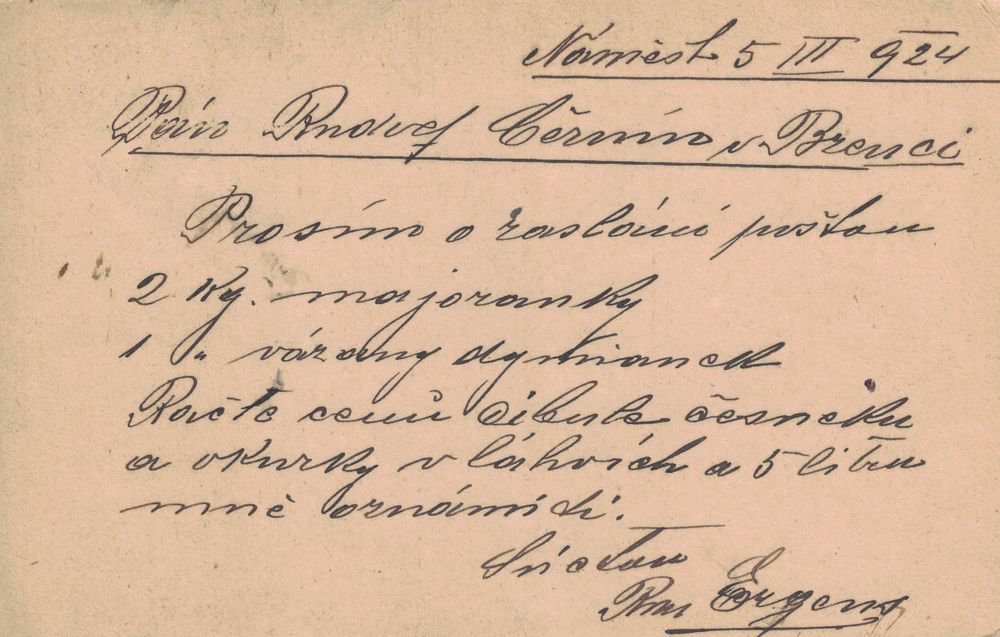 Náměšť 5 III 924
Pán Rudolf Čermín v Brenci
Prosím o zaslání poštou
2 Kg. majoranky
1 " vázaný dymianek
Račte cenů cibule česneku
a okurky v láhvích a 5 litru
mně oznámiti.
S úctou
Ergens